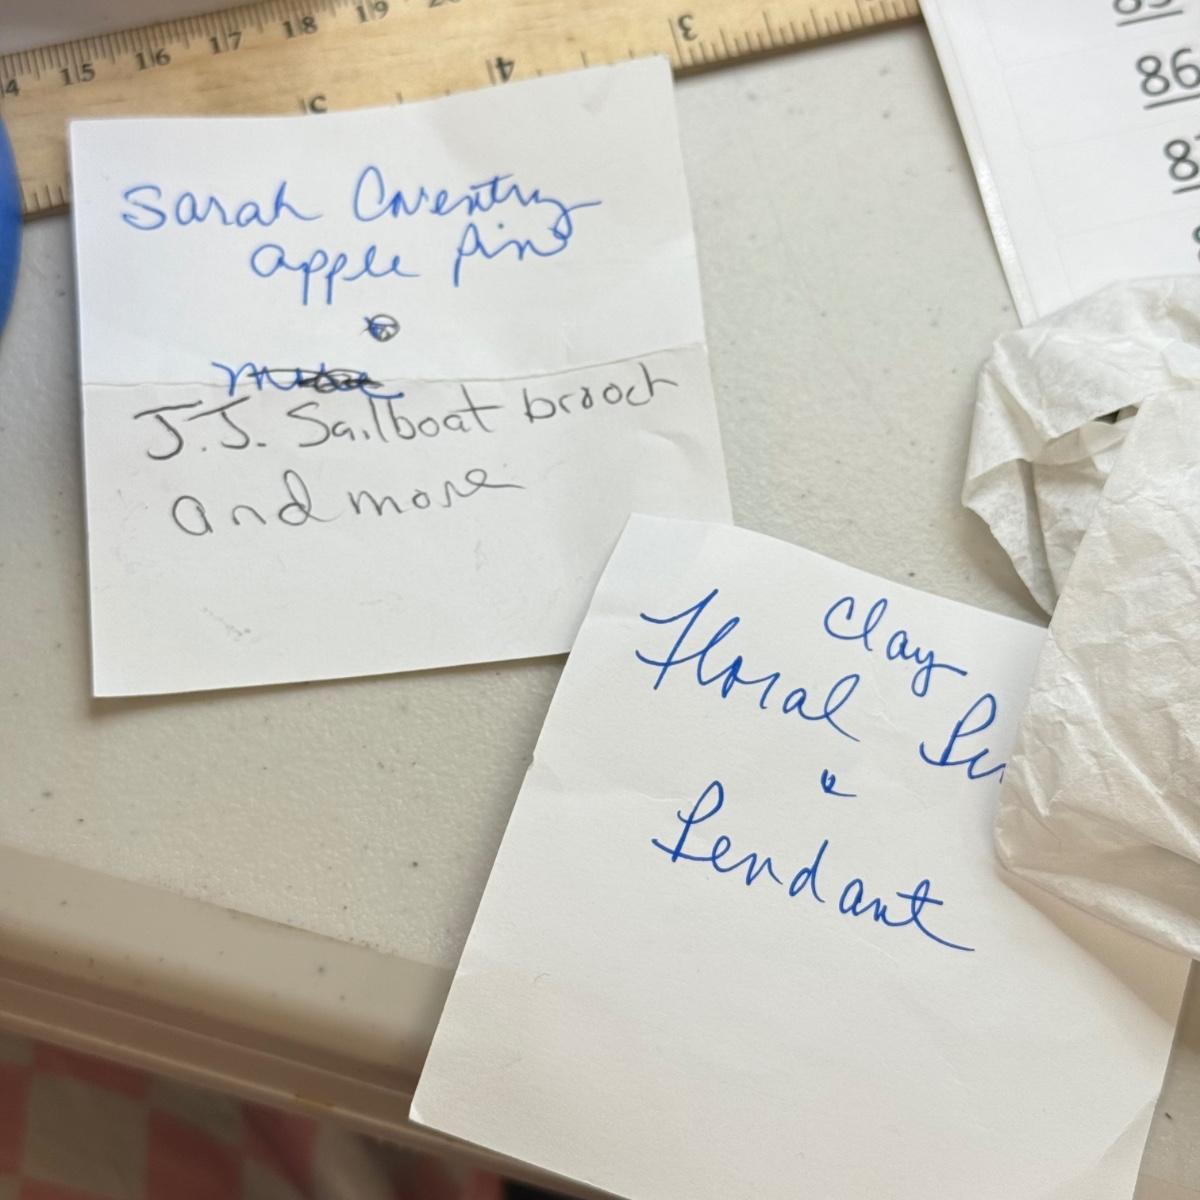 14 15 16 17 18 19 20
5 4 3
Sarah Coventry
apple pins
J.J. Sailboat brooch
and more
Clay
Floral
&
Pendant
85
86